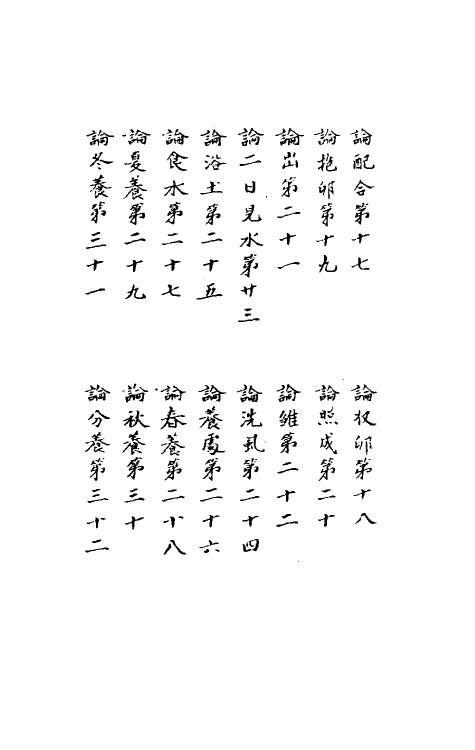 論配合第十七
論收卵第十八
論抱卵第十九
論照成第二十
論出第二十一
論雏第二十二
論二日見水第廿三
論洗虱第二十四
論浴土第二十五
論養處第二十六
論食水第二十七
論春養第二十八
論夏養第二十九
論秋養第三十
論冬養第三十一
論分養第三十二